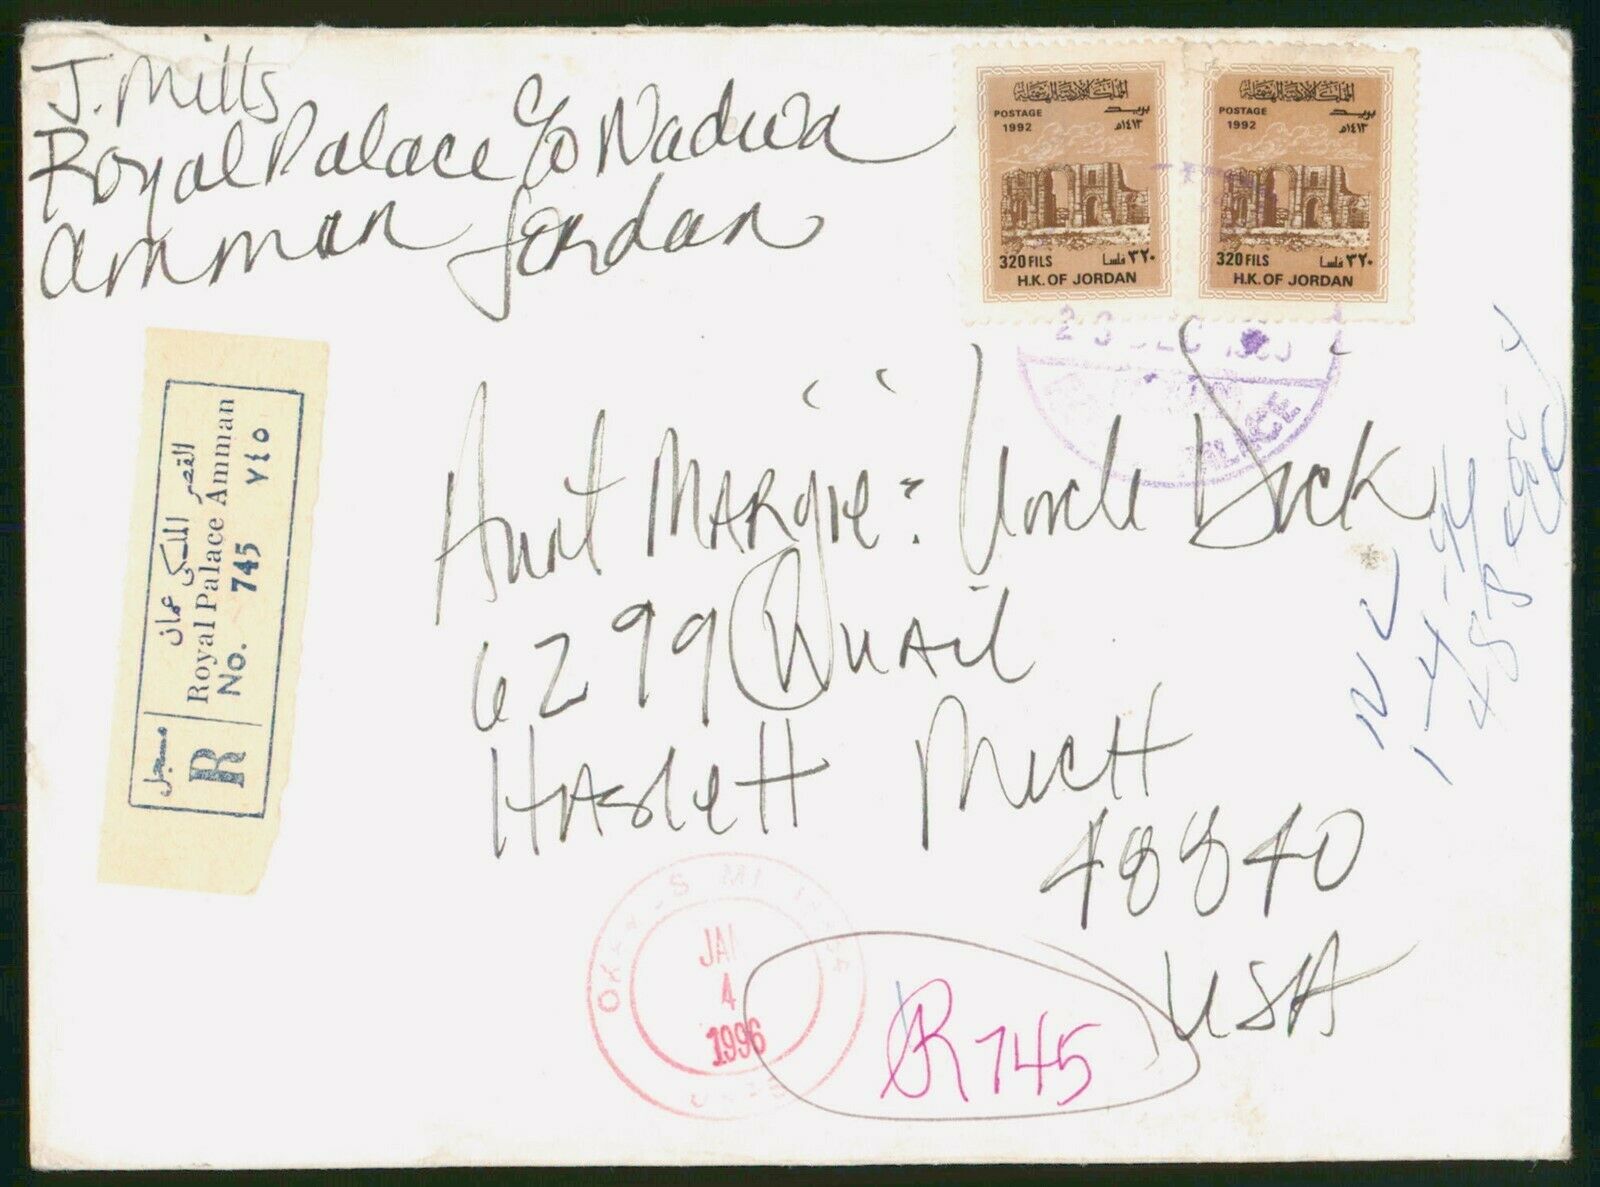 J. Mills
Royal Palace c/o Nadwa
Amman Jordan
المملكة الأردنية الهاشمية
POSTAGE بريد
1992 ١٤١٣هـ
320 FILS ٣٢٠ فلسا
H.K. OF JORDAN
المملكة الأردنية الهاشمية
POSTAGE بريد
1992 ١٤١٣هـ
320 FILS ٣٢٠ فلسا
H.K. OF JORDAN
PALACE
مسجل
R
القصر الملكي عمان
Royal Palace Amman
No. 745 ٧٤٥
Aunt Margie & Uncle Dick
6299 Quail
Haslett Mich
48840
USA
NL
1-4-96
JAN
4
1996
R745